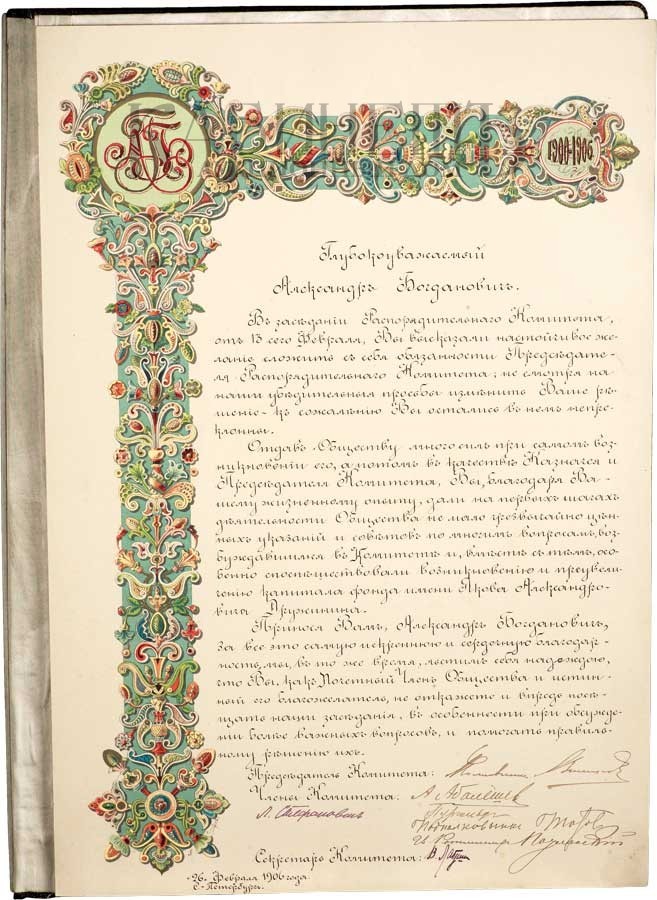 1900-1906
Глубокоуважаемый
Александръ Богдановичъ.
Въ засѣданіи Распорядительнаго Комитета,
отъ 13 сего Февраля, Вы высказали настойчивое же-
ланіе сложить съ себя обязанности Предсѣдате-
ля Распорядительнаго Комитета; не смотря на
наши убѣдительныя просьбы измѣнить Ваше рѣ-
шеніе - къ сожалѣнію Вы остались въ немъ непре-
клонны.
Отдавъ Обществу много силъ при самомъ воз-
никновеніи его, а потомъ въ качествѣ Казначея и
Предсѣдателя Комитета, Вы, благодаря Ва-
шему жизненному опыту, дали на первыхъ шагахъ
дѣятельности Общества не мало чрезвычайно цѣн-
ныхъ указаній и совѣтовъ по многимъ вопросамъ, воз-
буждавшимся въ Комитетѣ и, вмѣстѣ съ тѣмъ, осо-
бенно споспѣшествовали возникновенію и преувели-
ченію капитала фонда имени Якова Александро-
вича Дружинина.
Принося Вамъ, Александръ Богдановичъ,
за все это самую искреннюю и сердечную благодар-
ность, мы, въ то же время, льстимъ себя надеждою,
что Вы, какъ Почетный Членъ Общества и истин-
ный его благожелатель, не откажете и впредь посѣ-
щать наши засѣданія, въ особенности при обсужде-
ніи болѣе важныхъ вопросовъ, и помогать правиль-
ному рѣшенію ихъ.
Предсѣдатель Комитета:
Члены Комитета:
Секретарь Комитета:
26. Февраля 1906 года.
С.-Петербургъ.